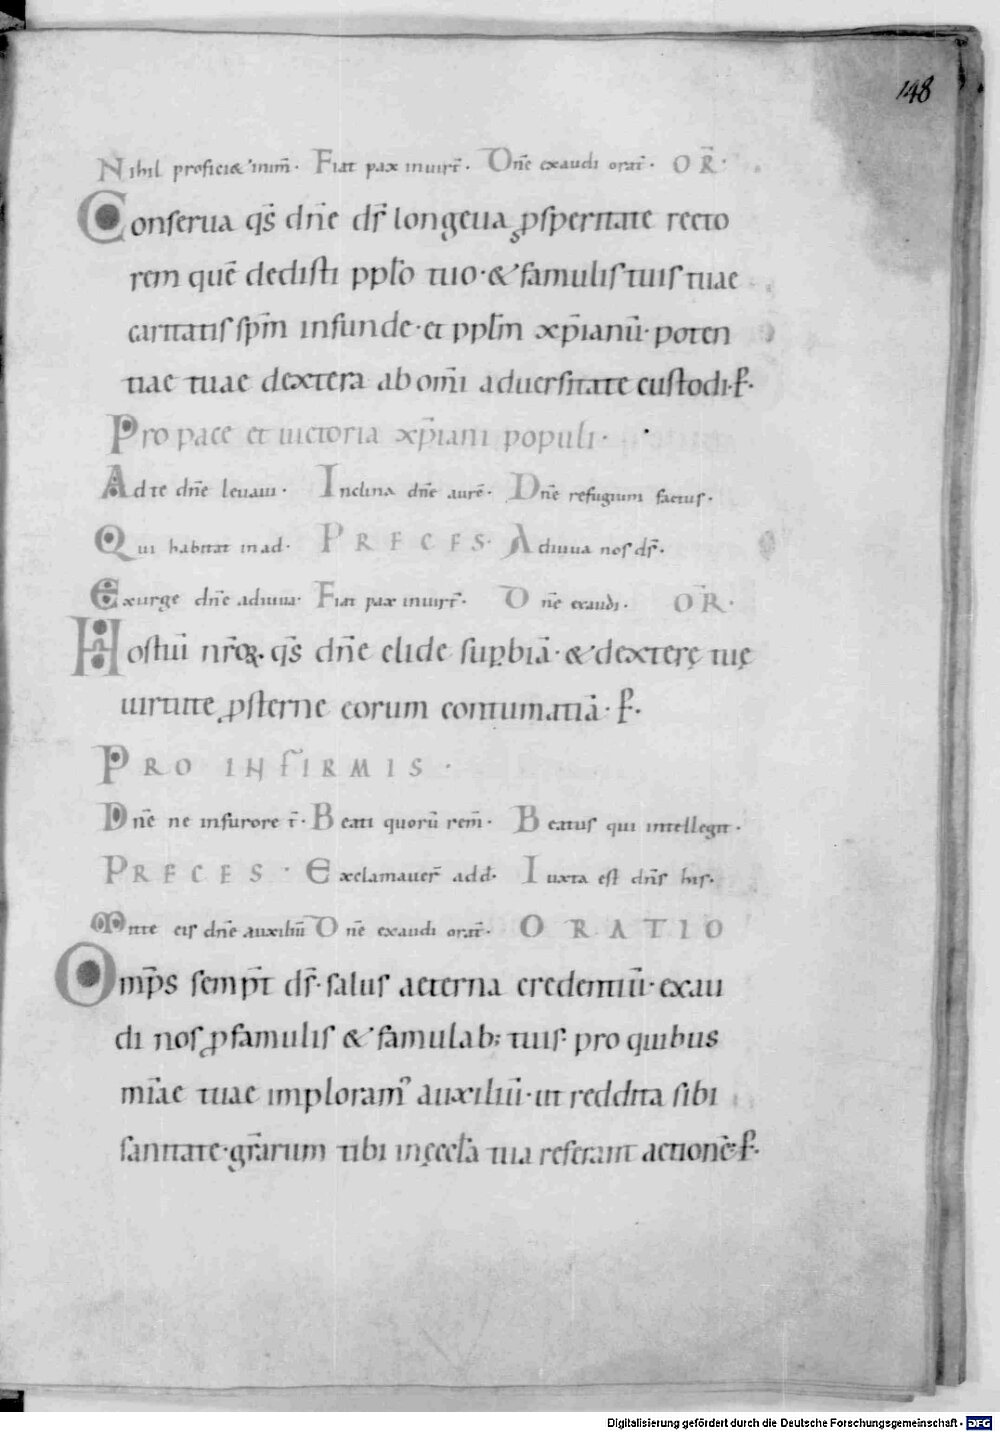 148
Nihil proficiet inim̄. Fiat pax inuirt̄. Dn̄e exaudi orat̄. OR̄.
Conserua qs̄ dn̄e ds̄ longeua ꝓsperitate recto
rem quē dedisti pplo̅ tuo. & famulis tuis tuae
caritatis sp̄m infunde. et ppl̄m xp̄ianū. poten
tiae tuae dextera ab om̄i aduersitate custodi. ꝑ.
Pro pace et uictoria xp̄iani populi.
Ad te dn̄e leuaui. Inclina dn̄e aurē. Dn̄e refugium factus.
Qui habitat in ad. PRECES. Adiuua nos ds̄.
Exurge dn̄e adiuua. Fiat pax inuirt̄. Dn̄e exaudi. OR̄.
Hostiū nr̄oꝝ. qs̄ dn̄e elide suꝑbiā. & dexterę tuę
uirtute ꝓsterne eorum contumatiā. ꝑ.
PRO INFIRMIS.
Dn̄e ne infurore t̄. Beati quorū rem̄. Beatus qui intellegit.
PRECES. Exclamauer̄ add. Iuxta est dn̄s his.
Mitte eis dn̄e auxiliū Dn̄e exaudi orat̄. ORATIO
Omp̄s semp̄t ds̄. salus aeterna credentiū. exau
di nos ꝓ famulis & famulab; tuis. pro quibus
mīae tuae imploram᾽ auxiliū. ut reddita sibi
sanitate. gr̄arum tibi in ęccl̄a tua referant actionē. ꝑ.
Digitalisierung gefördert durch die Deutsche Forschungsgemeinschaft - DFG